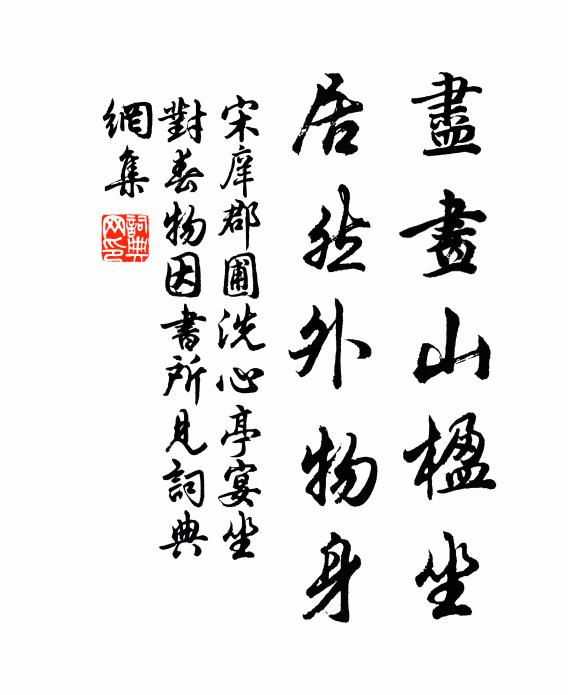 盡晝山楹坐
居然外物身
宋庠郡圃洗心亭宴坐
對春物因書所見詞典
網集
詞典网印